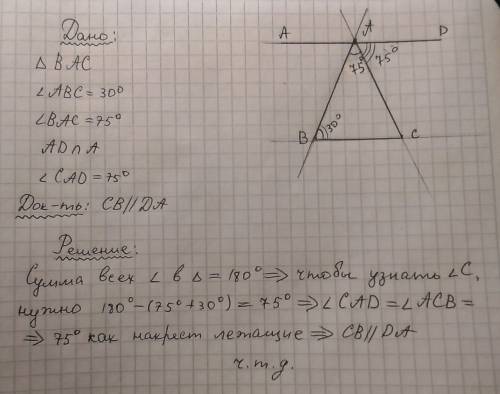 Дано:
Δ BAC
∠ABC = 30°
∠BAC = 75°
AD ∩ A
∠CAD = 75°
Док-ть: CB//DA
A
A
D
75°
75°
B
30°
C
Решение:
Сумма всех ∠ в Δ = 180° ⇒ чтобы узнать ∠C,
нужно 180° - (75° + 30°) = 75° ⇒ ∠CAD = ∠ACB =
⇒ 75° как накрест лежащие ⇒ CB//DA
ч.т.д.